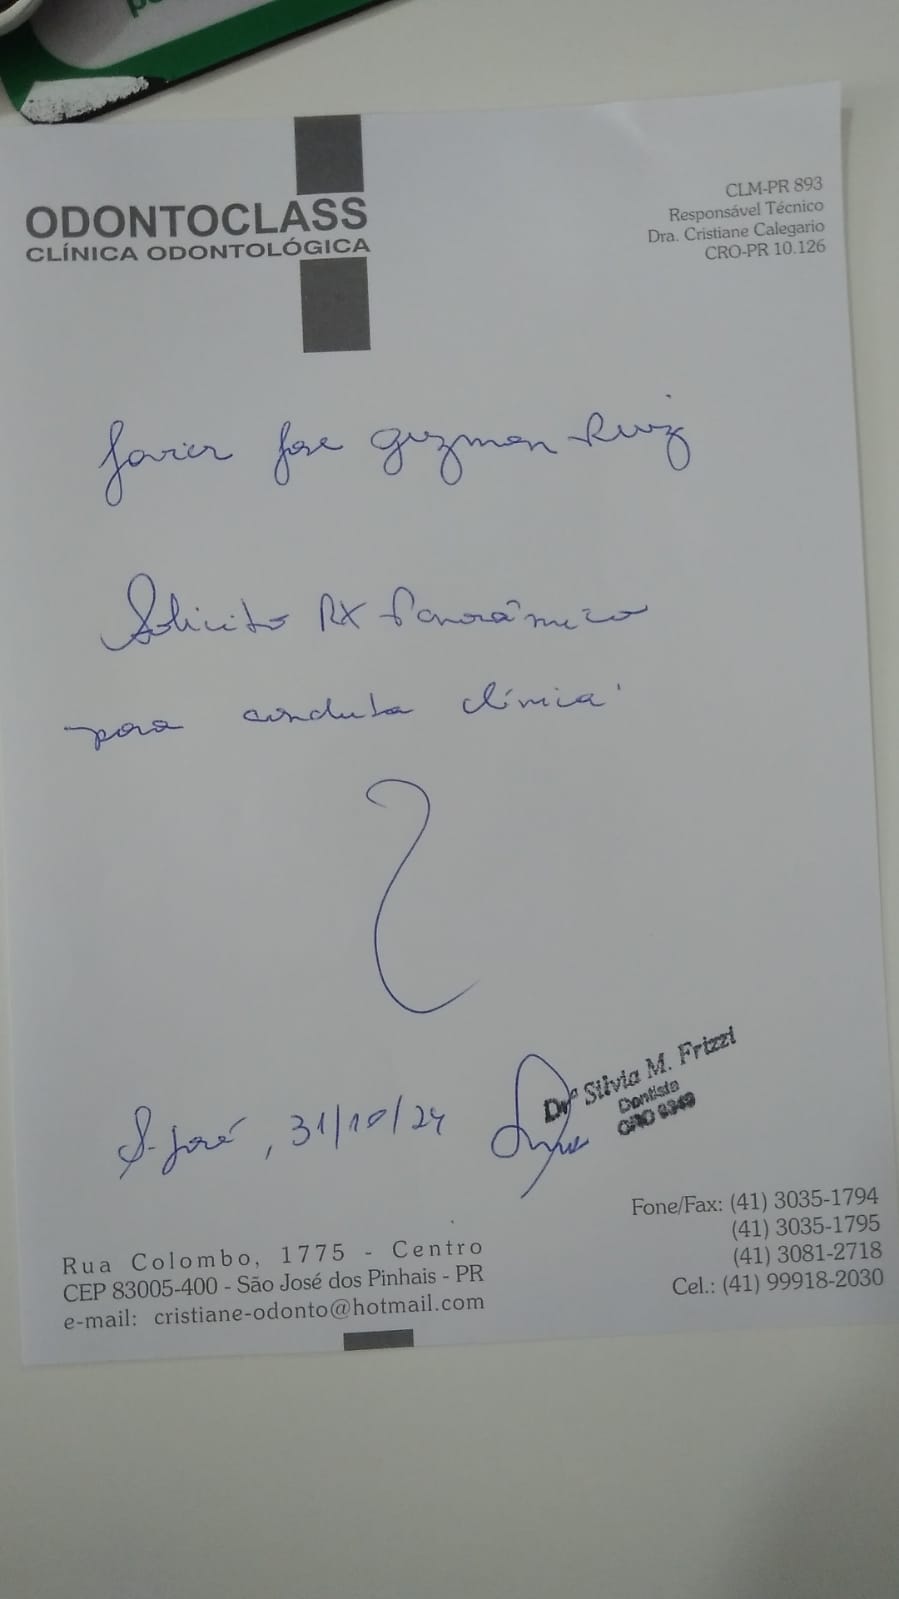 ODONTOCLASS
CLÍNICA ODONTOLÓGICA
CLM-PR 893
Responsável Técnico
Dra. Cristiane Calegario
CRO-PR 10.126
Javier Jose Guzman Ruiz
Solicito RX Panorâmico
para conduta clínica.
S. José, 31/10/24
Drª Silvia M. Frizzi
Dentista
CRO
Fone/Fax: (41) 3035-1794
(41) 3035-1795
(41) 3081-2718
Cel.: (41) 99918-2030
Rua Colombo, 1775 - Centro
CEP 83005-400 - São José dos Pinhais - PR
e-mail: cristiane-odonto@hotmail.com